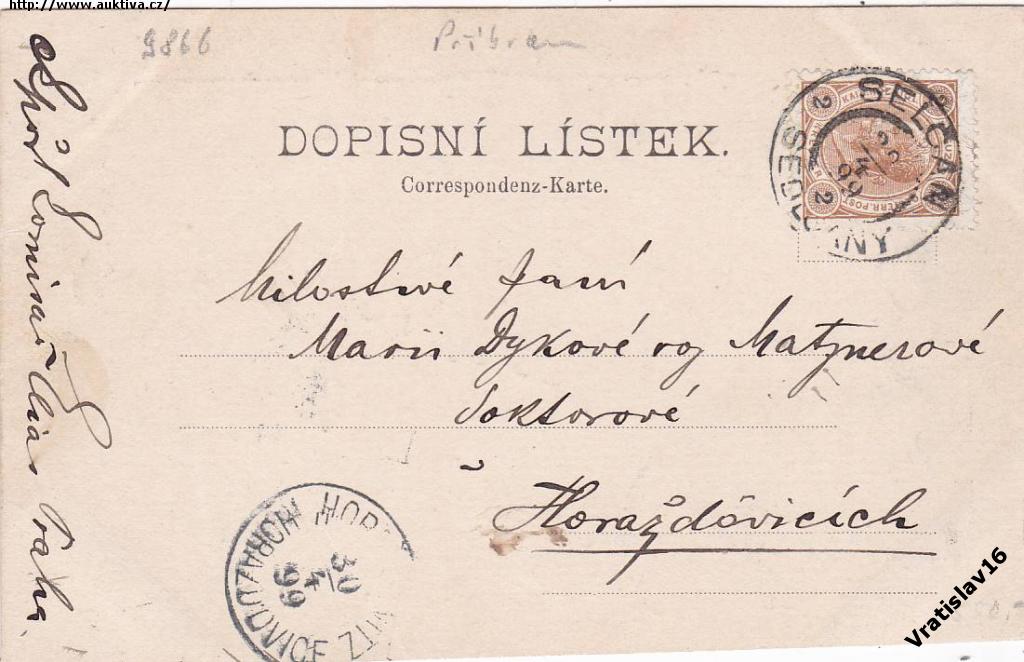 http://www.auktiva.cz/
9866
Příbram
DOPISNÍ LÍSTEK.
Correspondenz-Karte.
SELČAN
SEDLČANY
99
2 2
ERR. POST
Milostivé paní
Marii Dykové roz Matznerové
doktorové
v
Horažďovicích
HORAŽĎOVICE
30
4
99
Praha
Vratislav16